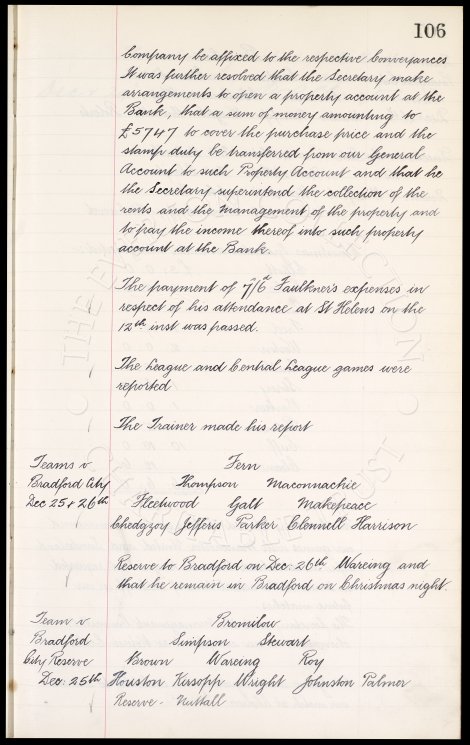 106
Company be affixed to the respective Conveyances
It was further resolved that the Secretary make
arrangements to open a property account at the
Bank, that a sum of money amounting to
£5747 to cover the purchase price and the
stamp duty be transferred from our General
Account to such Property Account and that he
the Secretary superintend the collection of the
rents and the management of the property and
to pay the income thereof into such property
account at the Bank.
The payment of 7/6d Faulkner's expenses in
respect of his attendance at St Helens on the
12th inst was passed.
The League and Central League games were
reported
The Trainer made his report
Teams v Fern
Bradford City Thompson Maconnachie
Dec 25 & 26th Fleetwood Galt Makepeace
Chedgzoy Jefferis Parker Clennell Harrison
Reserve to Bradford on Dec: 26th Wareing and
that he remain in Bradford on Christmas night.
Team v Bromilow
Bradford Simpson Stewart
City Reserve Brown Wareing Roy
Dec: 25th Houston Kirsopp Wright Johnston Palmer
Reserve - Nuttall